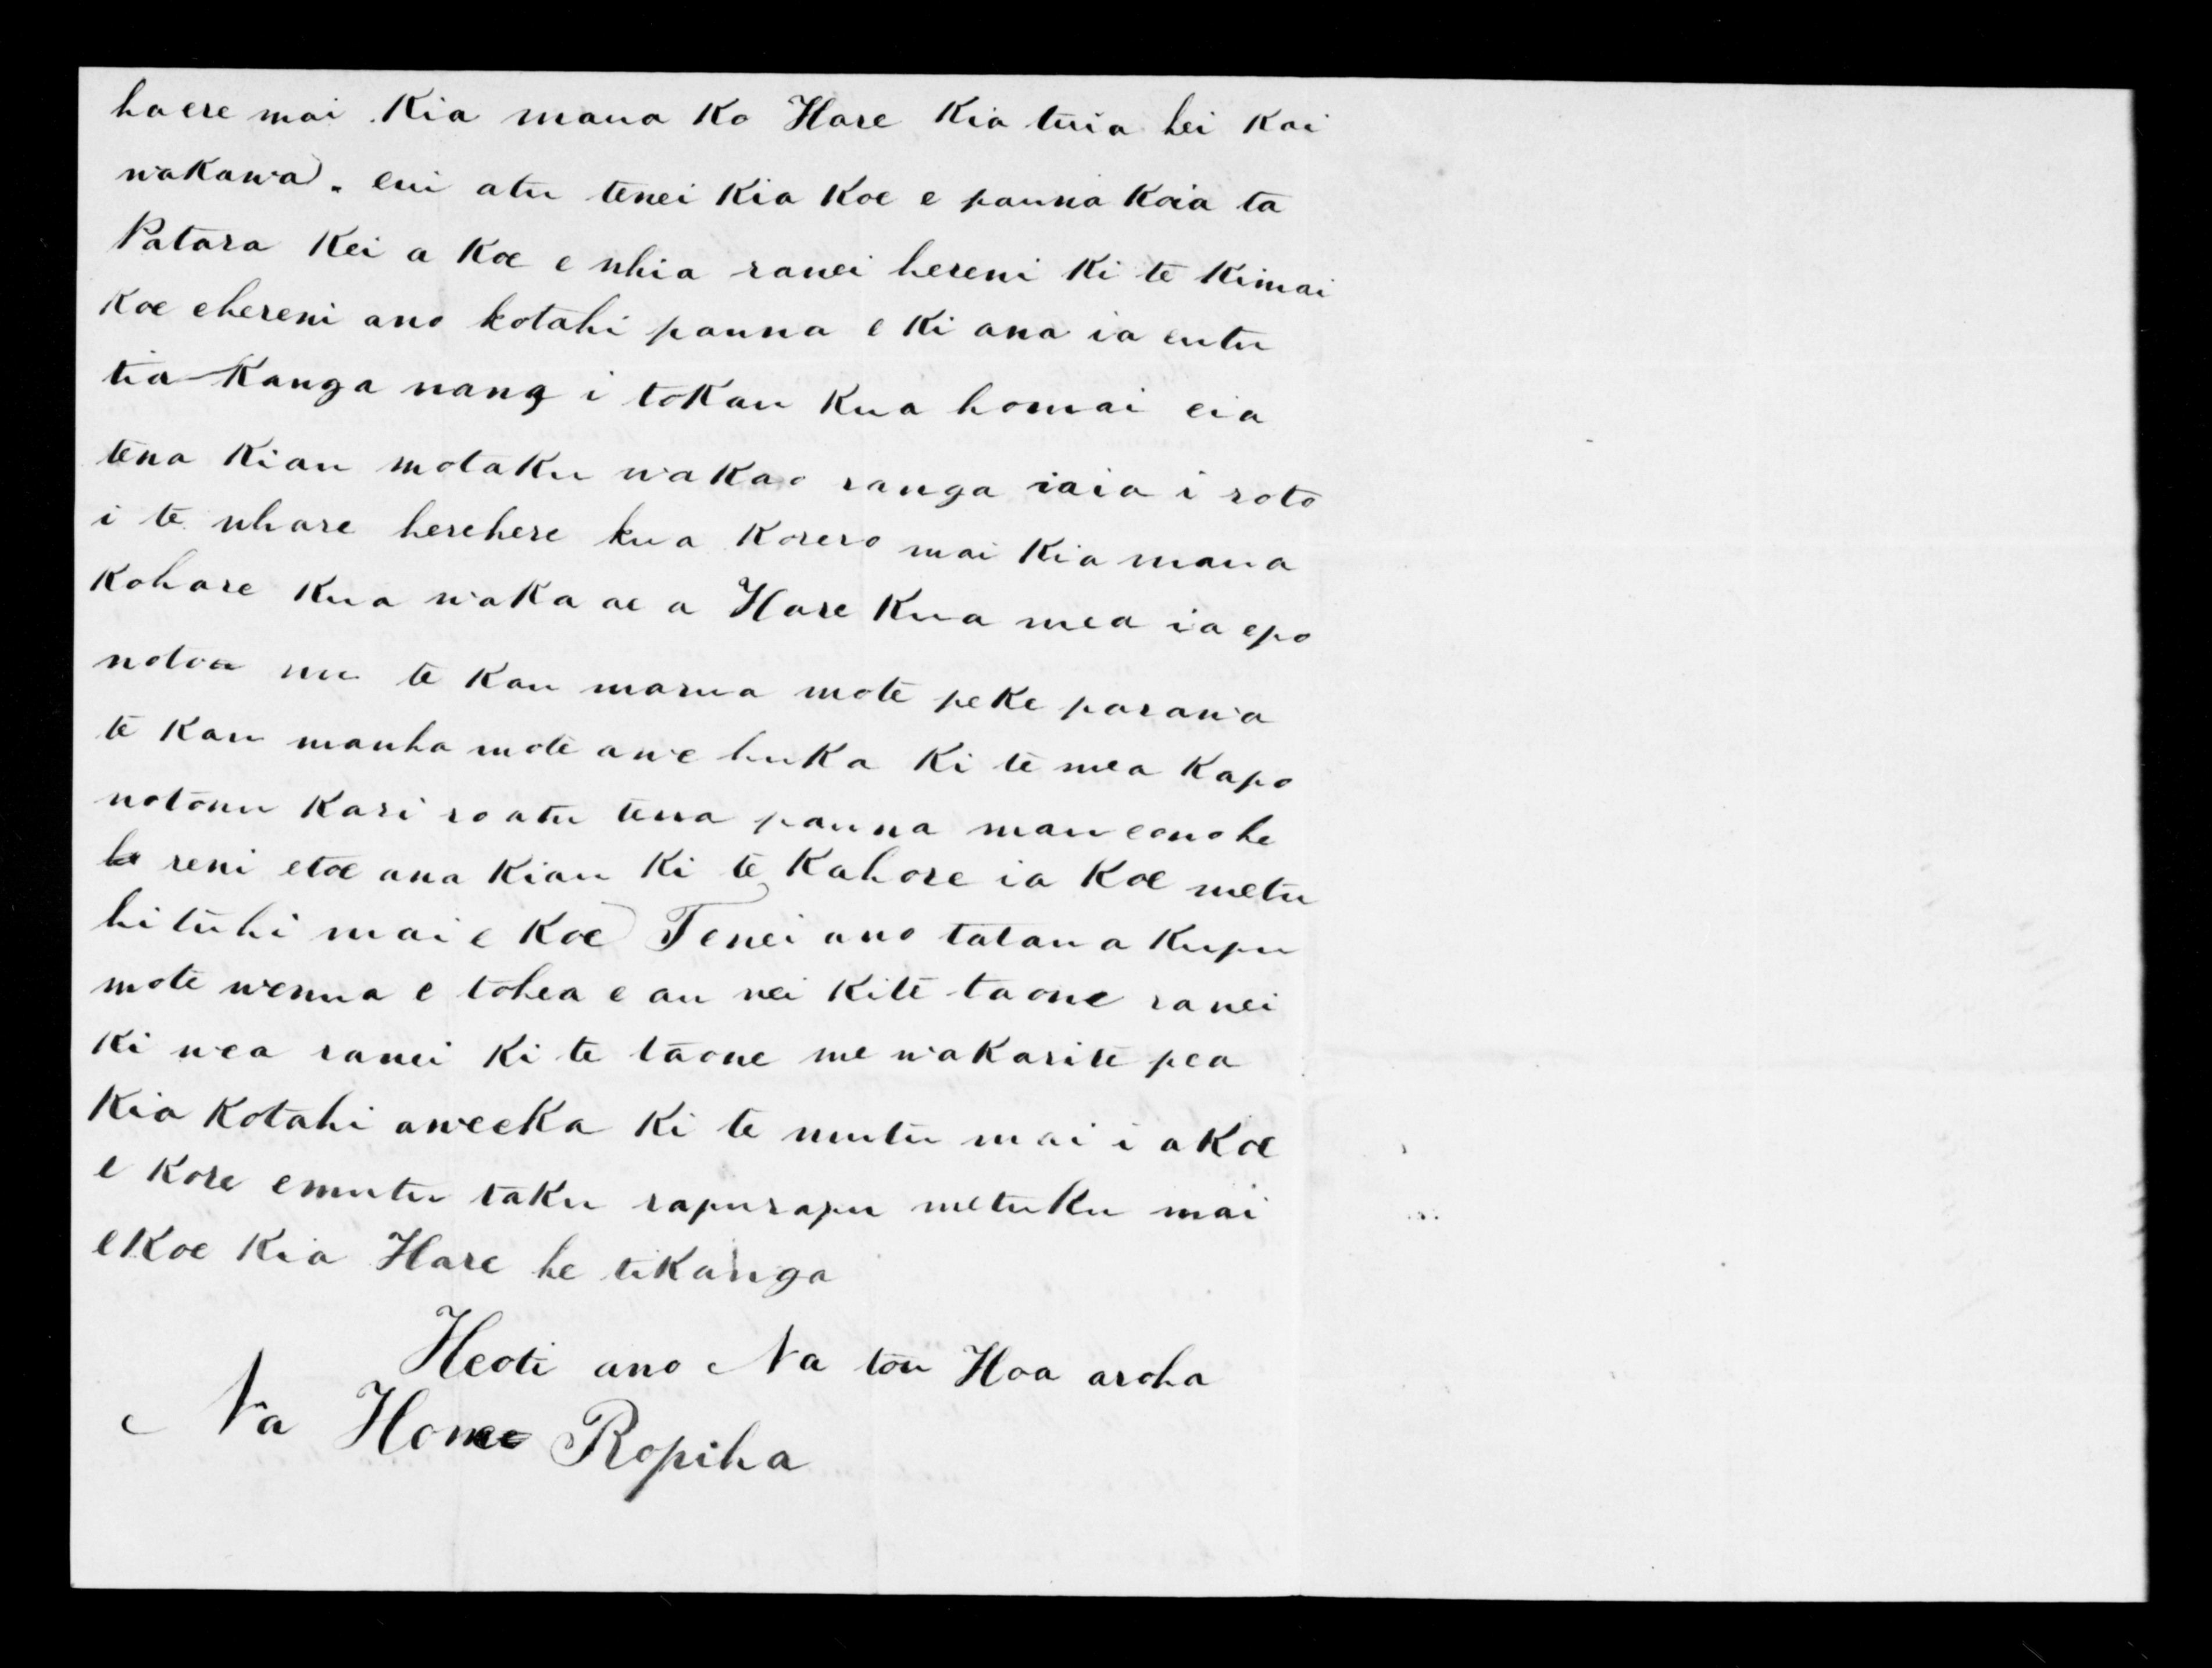 haere mai Kia maua Ko Hare Kia tuia hei Kai
wakawa. eui atu tenei Kia Koe e pauna Koia ta
Patara Kei a Koe e whia ranei hereni Ki te Kimai
Koe ehereni ano kotahi pauna e Ki ana ia eutu
tia Kanga nana i toKau Kua homai eia
tena Kiau motaKu waKao ranga iaia i roto
i te whare herehere kua Korero mai Kia maua
Kohare Kua waKa ae a Hare Kua mea ia epo
notou nu te Kau marua mote peKe parawa
te Kau mawha mote awe huKa Ki te mea Kapo
notonu Kari ro atu tena pauna mau eono he
reni etoe ana Kiau Ki te Kahore ia Koe metu
hi tuhi mai e Koe Tenei ano tatau a Kupu
mote wenua e tohea e au nei Kite taone ranei
Ki wea ranei Ki te taone me waKarite pea
Kia Kotahi aweeKa Ki te mutu mai i aKoe
e Kore emutu taKu rapurapu metuKu mai
eKoe Kia Hare he tiKanga
Heoti ano Na tou Hoa aroha
Na Hone Ropiha